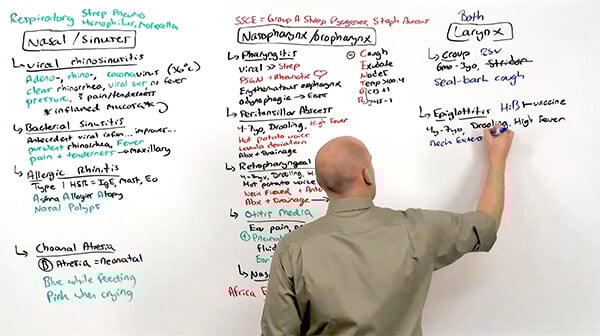 Respiratory Strep Pneumo
Hemophilus, Moraxella
Nasal / Sinuses
viral rhinosinusitis
Adeno-, rhino-, coronavirus (36°C)
clear rhinorrhea, viral sxs or fever
pressure, & pain/tenderness
* inflamed mucosa *
Bacterial Sinusitis
Antecedent viral infxn... improver...
purulent rhinorrhea, Fever
pain + tenderness → maxillary
Allergic Rhinitis
Type 1 HSR = IgE, Mast, Eo
Asthma Allergies Atopy
Nasal Polyps
Choanal Atresia
B Atresia = Neonatal
Blue while feeding
Pink when crying
SSCE = Group A Strep Pyogenes, Staph Aureus
Nasopharynx / oropharynx
Pharyngitis
viral >> Strep
PSGN + Rheumatic
Erythematous oropharynx
odynophagia → Ears
Cough
Exudate
Nodes
Temp >100.4
Peritonsillar Abscess
4-7yo, Drooling, High Fever
Hot potato voice
uvula deviation
Abx + Drainage
Retropharyngeal
4-7yo, Drooling, H
Hot potato voice
Neck Flexed +
Abx + Drainage →
Otitis Media
Ear pain,
Pneum
fluid
Ear
Nas
Africa
Both
Larynx
Croup RSV
6mo-3yo, Stridor
seal-bark cough
Epiglottitis HiB ← vaccine
4-7yo, Drooling, High Fever
Neck Exten